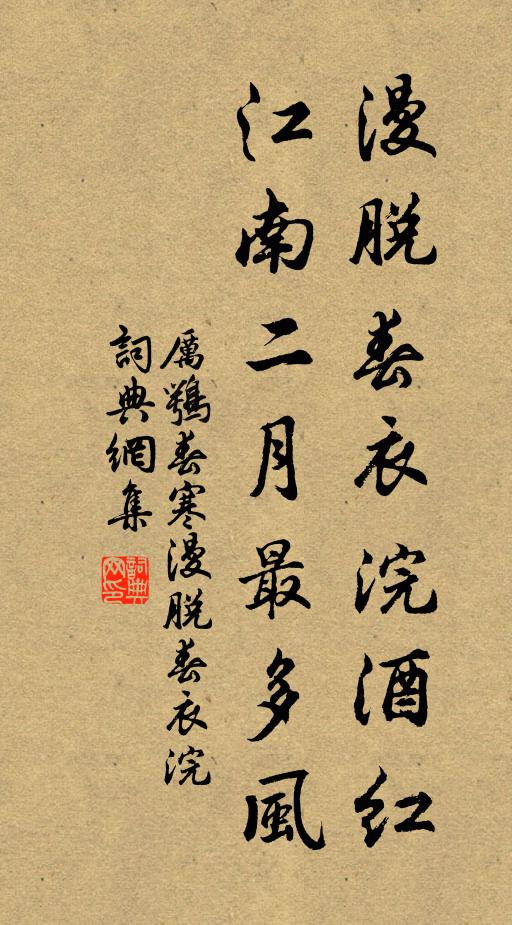 漫脱春衣浣酒紅
江南二月最多風
厲鶚春寒漫脱春衣浣
詞典網集
詞典網印